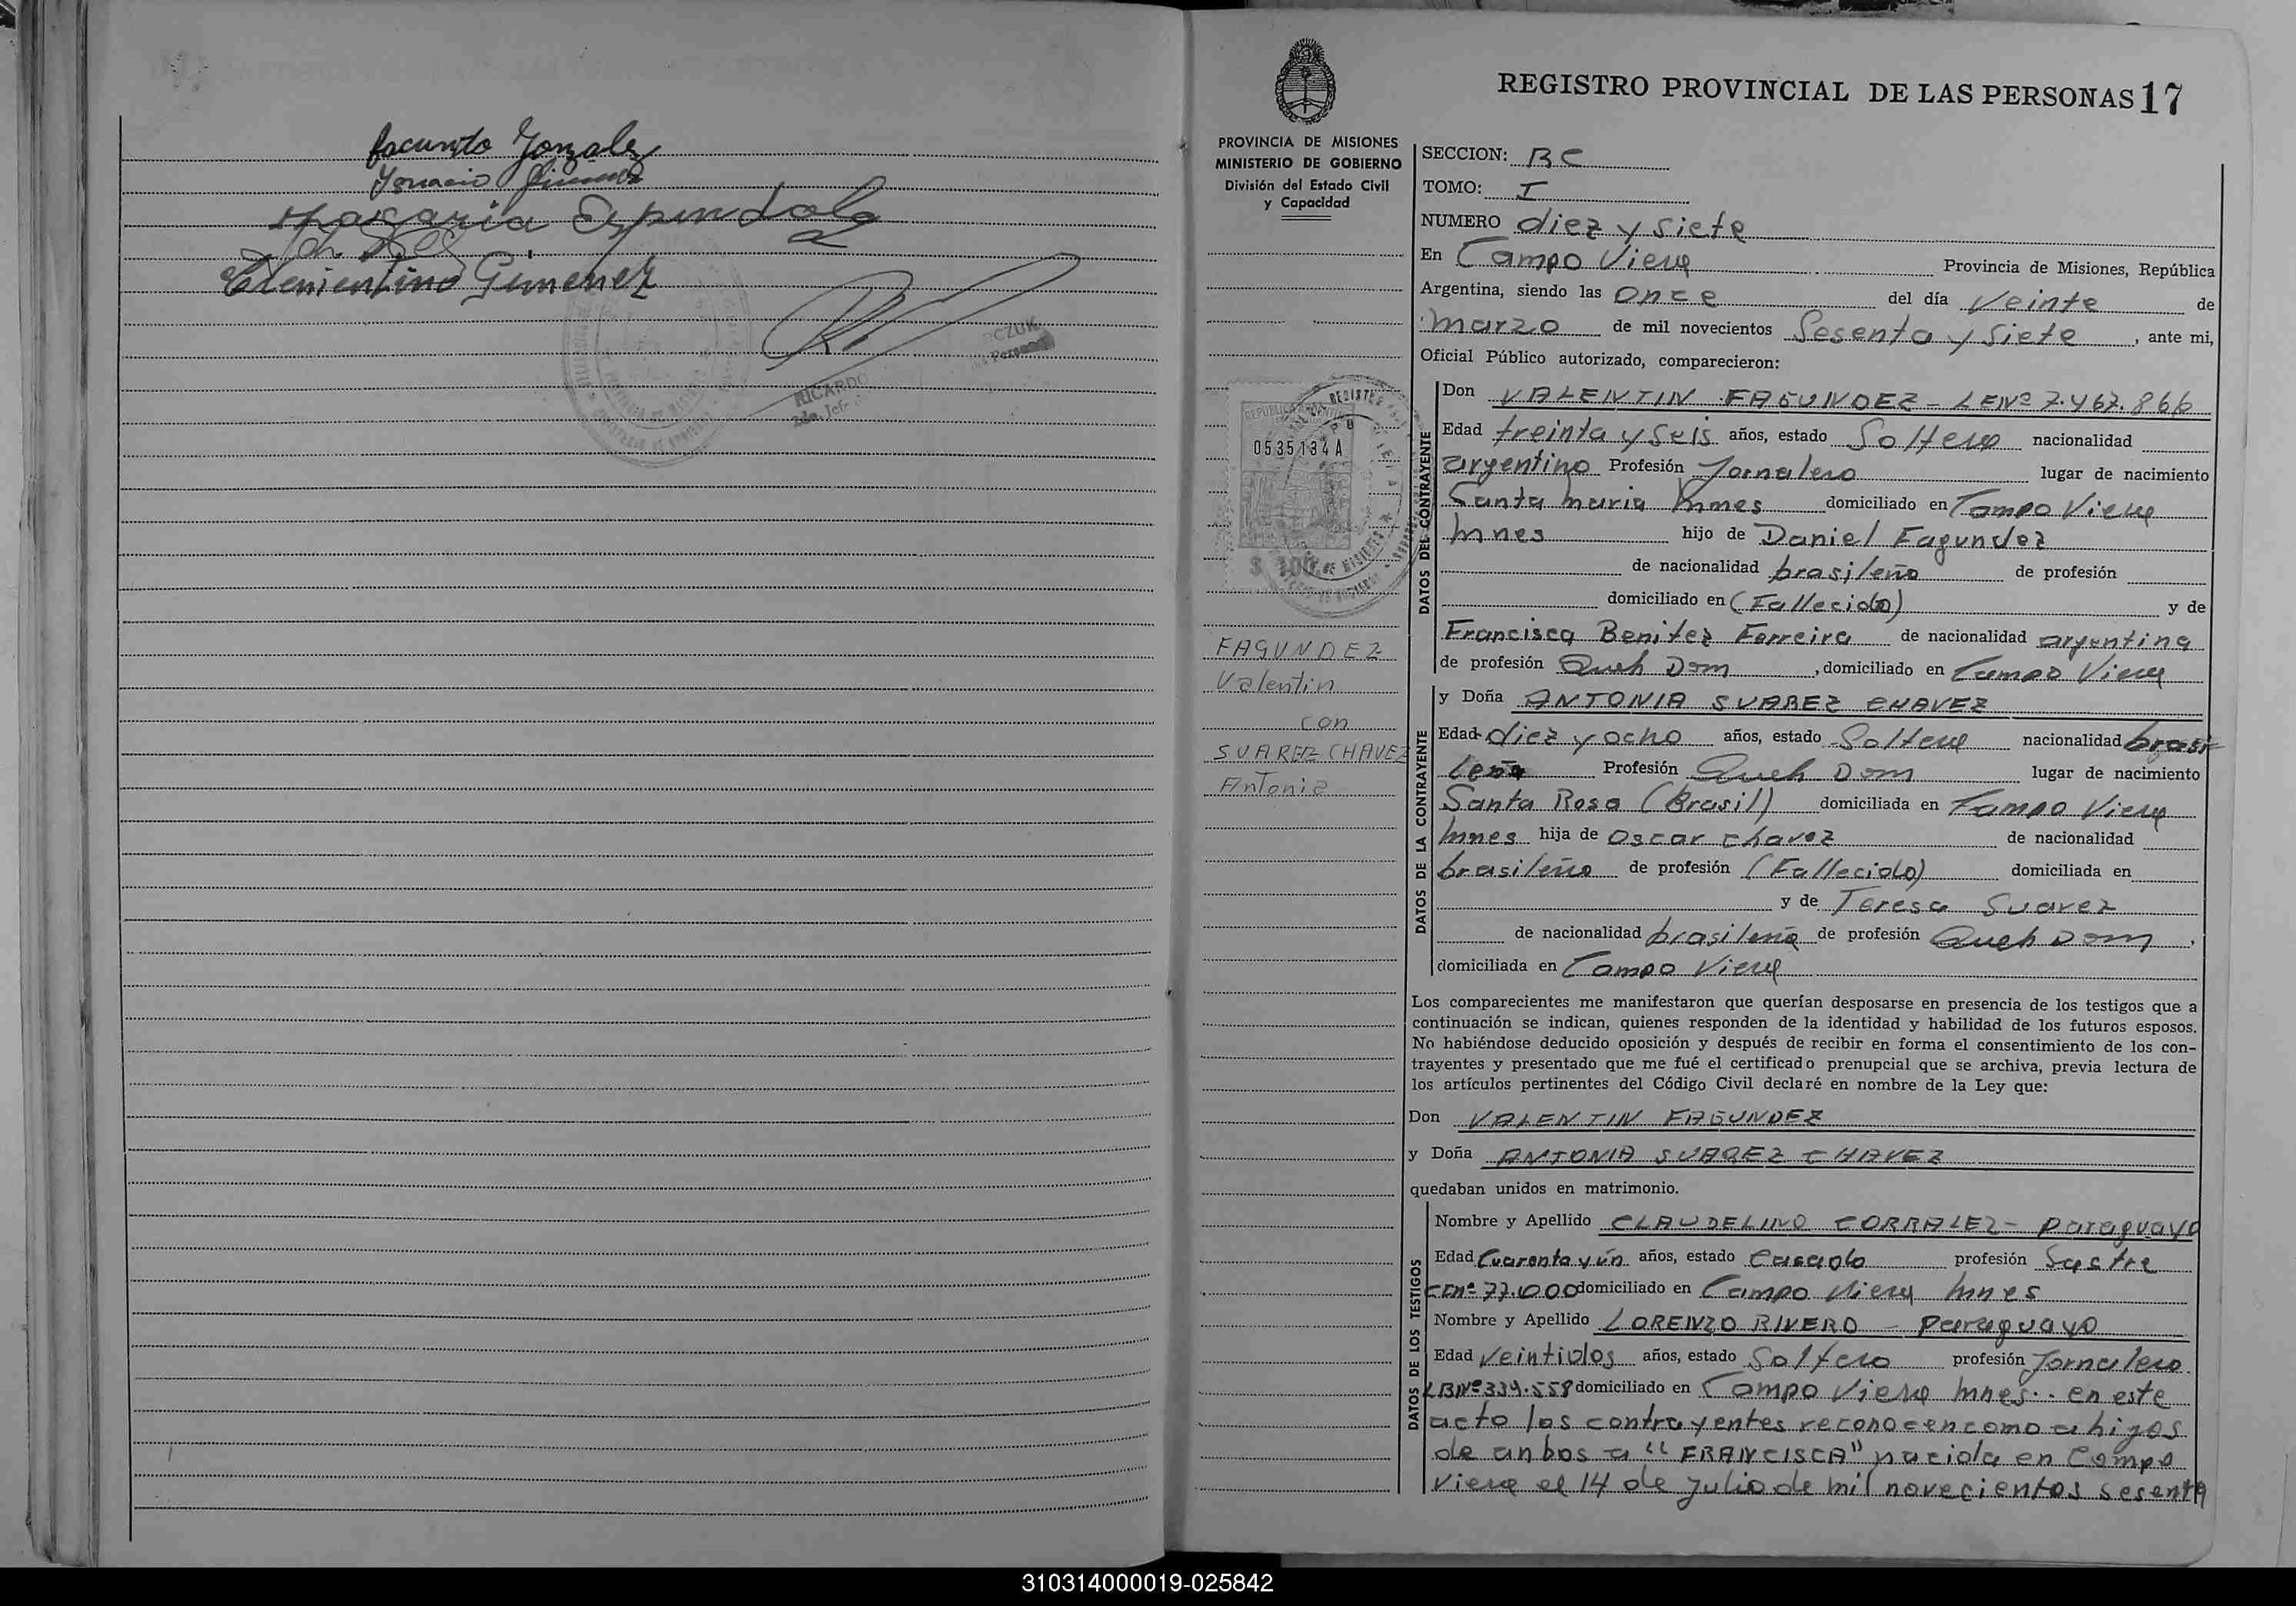 Facundo Gonzalez
Ignacio Gimenez
Macaria Espindola
Clementino Gimenez
RICARDO
2do. Jefe
REGISTRO PROVINCIAL DE LAS PERSONAS 17
PROVINCIA DE MISIONES
MINISTERIO DE GOBIERNO
División del Estado Civil
y Capacidad
0535134A
$ 100
FAGUNDEZ
Valentin
con
SUAREZ CHAVEZ
Antonia
SECCION: BC
TOMO: I
NUMERO diez y siete
En Campo Viera Provincia de Misiones, República
Argentina, siendo las once del día veinte de
marzo de mil novecientos sesenta y siete, ante mi,
Oficial Público autorizado, comparecieron:
DATOS DEL CONTRAYENTE
Don VALENTIN FAGUNDEZ - LENº 7.467.866
Edad treinta y seis años, estado Soltero nacionalidad
argentino Profesión Jornalero lugar de nacimiento
Santa maria Mnes domiciliado en Campo Viera
Mnes hijo de Daniel Fagundez
de nacionalidad brasileño de profesión
domiciliado en (Fallecido) y de
Francisca Benitez Ferreira de nacionalidad argentina
de profesión Queh Dom, domiciliado en Campo Viera
DATOS DE LA CONTRAYENTE
y Doña ANTONIA SUAREZ CHAVEZ
Edad diez y ocho años, estado Soltera nacionalidad brasi
leña Profesión Queh Dom lugar de nacimiento
Santa Rosa (Brasil) domiciliada en Campo Viera
Mnes hija de Oscar chavez de nacionalidad
brasileño de profesión (Fallecido) domiciliada en
y de Teresa Suarez
de nacionalidad brasileña de profesión Queh Dom,
domiciliada en Campo Viera
Los comparecientes me manifestaron que querían desposarse en presencia de los testigos que a
continuación se indican, quienes responden de la identidad y habilidad de los futuros esposos.
No habiéndose deducido oposición y después de recibir en forma el consentimiento de los con-
trayentes y presentado que me fué el certificado prenupcial que se archiva, previa lectura de
los artículos pertinentes del Código Civil declaré en nombre de la Ley que:
Don VALENTIN FAGUNDEZ
y Doña ANTONIA SUAREZ CHAVEZ
quedaban unidos en matrimonio.
DATOS DE LOS TESTIGOS
Nombre y Apellido CLAUDELINO CORRALEZ - paraguayo
Edad Cuarenta y ún años, estado Casado profesión Sastre
CInº 77.000 domiciliado en Campo Viera Mnes
Nombre y Apellido LORENZO RIVERO - paraguayo
Edad veintidos años, estado Soltero profesión Jornalero
LBNº 339.558 domiciliado en Campo Viera Mnes.. en este
acto los contrayentes reconocen como a hijos
de anbos a "FRANCISCA" nacida en Campo
Viera el 14 de Julio de mil novecientos sesenta
310314000019-025842